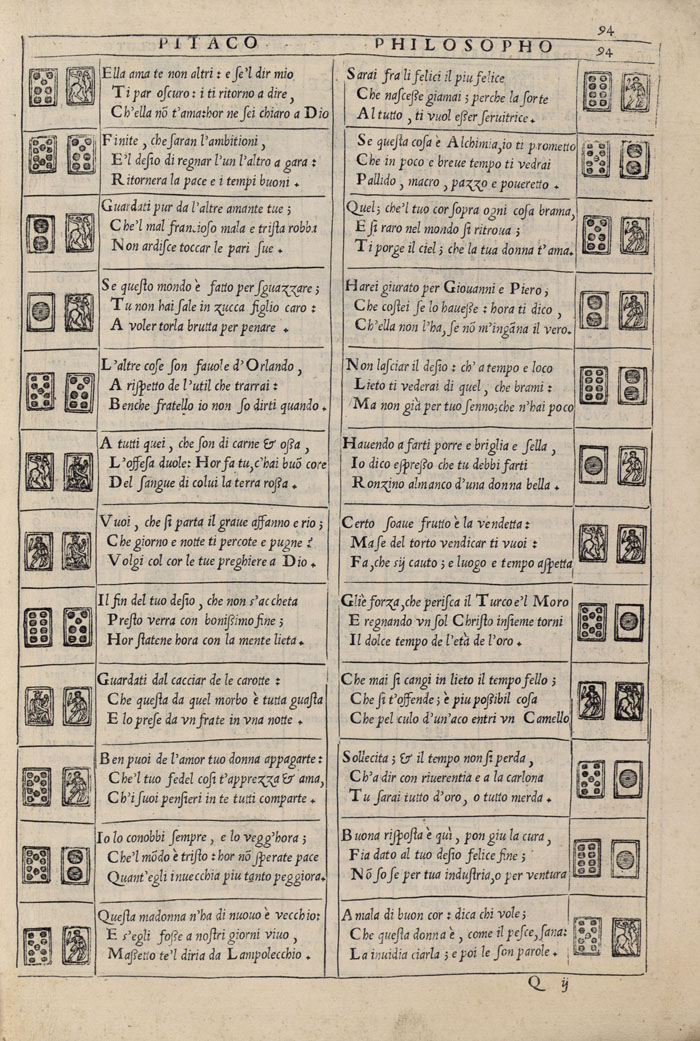 94
PITACO PHILOSOPHO 94
Ella ama te non altri : e se'l dir mio
Ti par oscuro : i ti ritorno a dire ,
Ch'ella nõ t'ama: hor ne sei chiaro a Dio
Finite , che saran l'ambitioni ,
E'l desio di regnar l'un l'altro a gara :
Ritornera la pace e i tempi buoni .
Guardati pur da l'altre amante tue ;
Che'l mal franzioso mala e trista robba
Non ardisce toccar le pari sue .
Se questo mondo è fatto per sguazzare ;
Tu non hai sale in zucca figlio caro :
A voler torla brutta per penare .
L'altre cose son fauole d'Orlando ,
A rispetto de l'util che trarrai :
Benche fratello io non so dirti quando .
A tutti quei , che son di carne & ossa ,
L'offesa duole : Hor fa tu, c'hai buõ core
Del sangue di colui la terra rossa .
Vuoi , che si parta il graue affanno e rio ;
Che giorno e notte ti percote e pugne ?
Volgi col cor le tue preghiere a Dio .
Il fin del tuo desio , che non s'accheta
Presto verra con bonissimo fine ;
Hor statene hora con la mente lieta .
Guardati dal cacciar de le carotte :
Che questa da quel morbo è tutta guasta
E lo prese da vn frate in vna notte .
Ben puoi de l'amor tuo donna appagarte :
Che'l tuo fedel cosi t'apprezza & ama ,
Ch'i suoi pensieri in te tutti comparte .
Io lo conobbi sempre , e lo vegg'hora ;
Che'l mõdo è tristo : hor nõ sperate pace
Quant'egli inuecchia piu tanto peggiora .
Questa madonna n'ha di nuouo è vecchio :
E s'egli fosse a nostri giorni viuo ,
Massetto te'l diria da Lampolecchio .
Sarai fra li felici il piu felice
Che nascesse giamai ; perche la sorte
Al tutto , ti vuol esser seruitrice .
Se questa cosa è Alchimia, io ti prometto
Che in poco e breue tempo ti vedrai
Pallido , macro , pazzo e poueretto .
Quel; che'l tuo cor sopra ogni cosa brama,
E si raro nel mondo si ritroua ;
Ti porge il ciel ; che la tua donna t'ama .
Harei giurato per Giouanni e Piero ;
Che costei se lo hauesse : hora ti dico ,
Ch'ella non l'ha, se nõ m'ingãna il vero .
Non lasciar il desio : ch' a tempo e loco
Lieto ti vederai di quel , che brami :
Ma non già per tuo senno; che n'hai poco
Hauendo a farti porre e briglia e sella ,
Io dico espresso che tu debbi farti
Ronzino almanco d'una donna bella .
Certo soaue frutto è la vendetta :
Ma se del torto vendicar ti vuoi :
Fa, che sij cauto ; e luogo e tempo aspetta
Gliè forza, che perisca il Turco e'l Moro
E regnando vn sol Christo insieme torni
Il dolce tempo de l'età de l'oro .
Che mai si cangi in lieto il tempo fello ;
Che si t'offende ; è piu possibil cosa
Che pel culo d'un'aco entri vn Camello
Sollecita ; & il tempo non si perda ,
Ch'a dir con riuerentia e a la carlona
Tu sarai tutto d'oro , o tutto merda .
Buona risposta è quì , pon giu la cura ,
Fia dato al tuo desio felice fine ;
Nõ so se per tua industria, o per ventura
Amala di buon cor : dica chi vole ;
Che questa donna è , come il pesce, sana :
La inuidia ciarla ; e poi le son parole .
Q ij